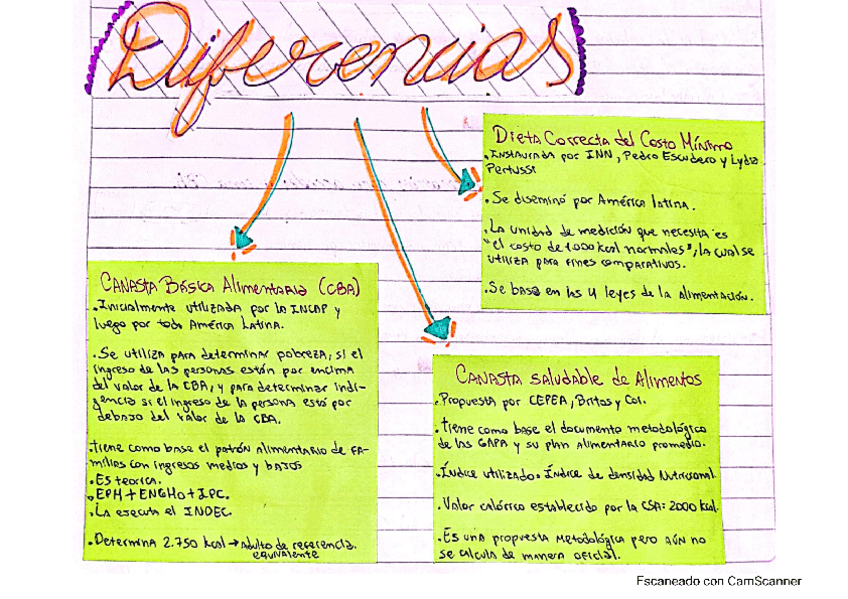 Diferencias
Dieta Correcta del Costo Mínimo
.Instaurada por INN, Pedro Escudero y Lydia
Pertussi
.Se diseminó por América Latina.
.La unidad de medición que necesita es
"el costo de 1000 kcal normales", la cual se
utiliza para fines comparativos.
.Se basa en las 4 leyes de la Alimentación.
CANASTA Básica Alimentaria (CBA)
.Inicialmente utilizada por la INCAP y
luego por toda América Latina.
.Se utiliza para determinar pobreza, si el
ingreso de las personas están por encima
del valor de la CBA, y para determinar indi-
gencia si el ingreso de la persona está por
debajo del valor de la CBA.
.tiene como base el patrón alimentario de fa-
milias con ingresos medios y bajos
.Es teórica.
.EPH+ENGHo+IPC.
.La ejecuta el INDEC.
.Determina 2.750 kcal → Adulto de referencia.
equivalente
CANASTA saludable de Alimentos
.Propuesta por CEPEA, Britos y Col.
.tiene como base el documento metodológico
de las GAPA y su plan alimentario promedio.
.Índice utilizado: Índice de densidad Nutricional.
.Valor calórico establecido por la CSA= 2000 kcal.
.Es una propuesta metodológica pero aún no
se calcula de manera oficial.
Escaneado con CamScanner